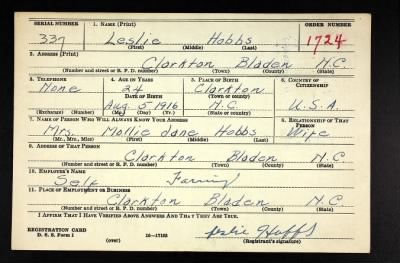 SERIAL NUMBER 1. NAME (Print) ORDER NUMBER
337 Leslie Hobbs 1724
(First) (Middle) (Last)
2. ADDRESS (Print)
Clarkton Bladen N.C.
(Number and street or R. F. D. number) (Town) (County) (State)
3. TELEPHONE 4. AGE IN YEARS 5. PLACE OF BIRTH 6. COUNTRY OF CITIZENSHIP
None 24 Clarkton
DATE OF BIRTH (Town or county)
Aug 5 1916 N.C. U.S.A.
(Exchange) (Number) (Mo.) (Day) (Yr.) (State or country)
7. NAME OF PERSON WHO WILL ALWAYS KNOW YOUR ADDRESS 8. RELATIONSHIP OF THAT PERSON
Mrs. Mollie Jane Hobbs Wife
(Mr., Mrs., Miss) (First) (Middle) (Last)
9. ADDRESS OF THAT PERSON
Clarkton Bladen N.C.
(Number and street or R. F. D. number) (Town) (County) (State)
10. EMPLOYER'S NAME
Self Farming
11. PLACE OF EMPLOYMENT OR BUSINESS
Clarkton Bladen N.C.
(Number and street or R. F. D. number) (Town) (County) (State)
I AFFIRM THAT I HAVE VERIFIED ABOVE ANSWERS AND THAT THEY ARE TRUE.
REGISTRATION CARD
D. S. S. Form 1 (over) 16—17105 Leslie Hobbs
(Registrant's signature)